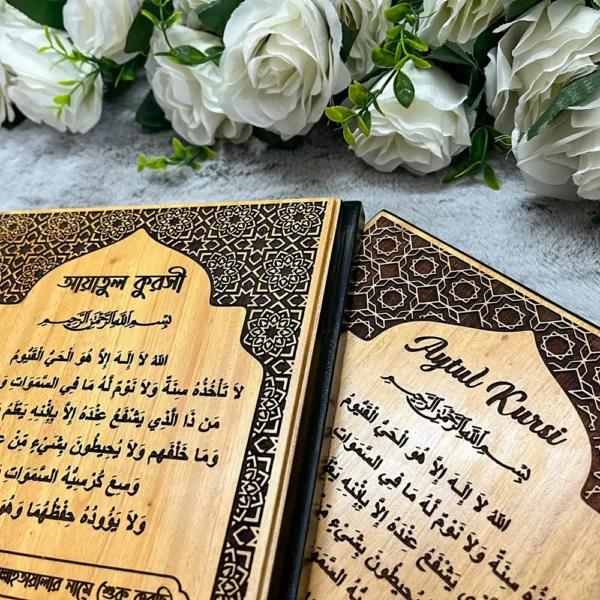 আয়াতুল কুরসী
بِسْمِ اللهِ الرَّحْمٰنِ الرَّحِيْمِ
اللهُ لاَ إِلَهَ إِلاَّ هُوَ الْحَيُّ الْقَيُّومُ
لاَ تَأْخُذُهُ سِنَةٌ وَلاَ نَوْمٌ لَهُ مَا فِي السَّمَوَاتِ
مَن ذَا الَّذِي يَشْفَعُ عِنْدَهُ إِلاَّ بِإِذْنِهِ يَعْلَمُ
وَمَا خَلْفَهُم وَلاَ يُحِيطُونَ بِشَيْءٍ مِّنْ
وَسِعَ كُرْسِيُّهُ السَّمَوَاتِ
وَلاَ يَؤُودُهُ حِفْظُهُمَا وَهُوَ
নামে শুরু করছি
Aytul Kursi
بِسْمِ اللهِ الرَّحْمٰنِ الرَّحِيْمِ
اللهُ لاَ إِلَهَ إِلاَّ هُوَ الْحَيُّ الْقَيُّومُ
سِنَةٌ وَلاَ نَوْمٌ لَهُ مَا فِي السَّمَوَاتِ
يَشْفَعُ عِنْدَهُ إِلاَّ بِإِذْنِهِ
يُحِيطُونَ بِشَيْءٍ